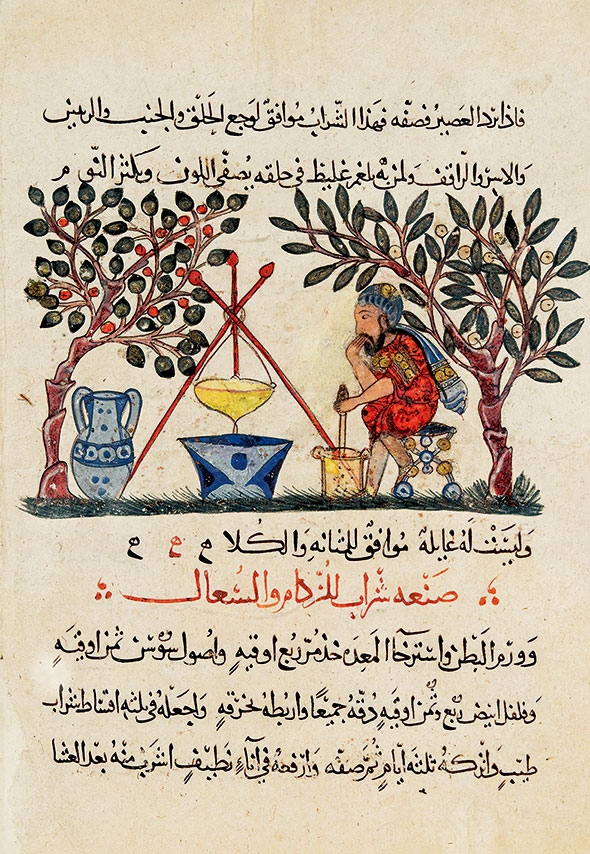 فاذا برد العصير فصفه فهذا الشراب موافق لوجع الحلق والجنب والرئتين
والاسر والراقف ولمن به بلغم غليظ في حلقه يصفي اللون ويكثر النوم م
وليست له غايله موافق للمثانه والكلا م ح ح ح
صنعه شراب للزكام والسعال
وورم البطن واسترخا المعده خذ مر ربع اوقيه واصول سوسن ثمن اوقيه
وفلفل ابيض ربع وثمن اوقيه دقه جميعًا واربطه بخرقه واجعله في ثلثه اقساط شراب
طيب واتركه ثلثه أيام ثم صفه وارفعه في اناء نظيف اشرب منه بعد العشا